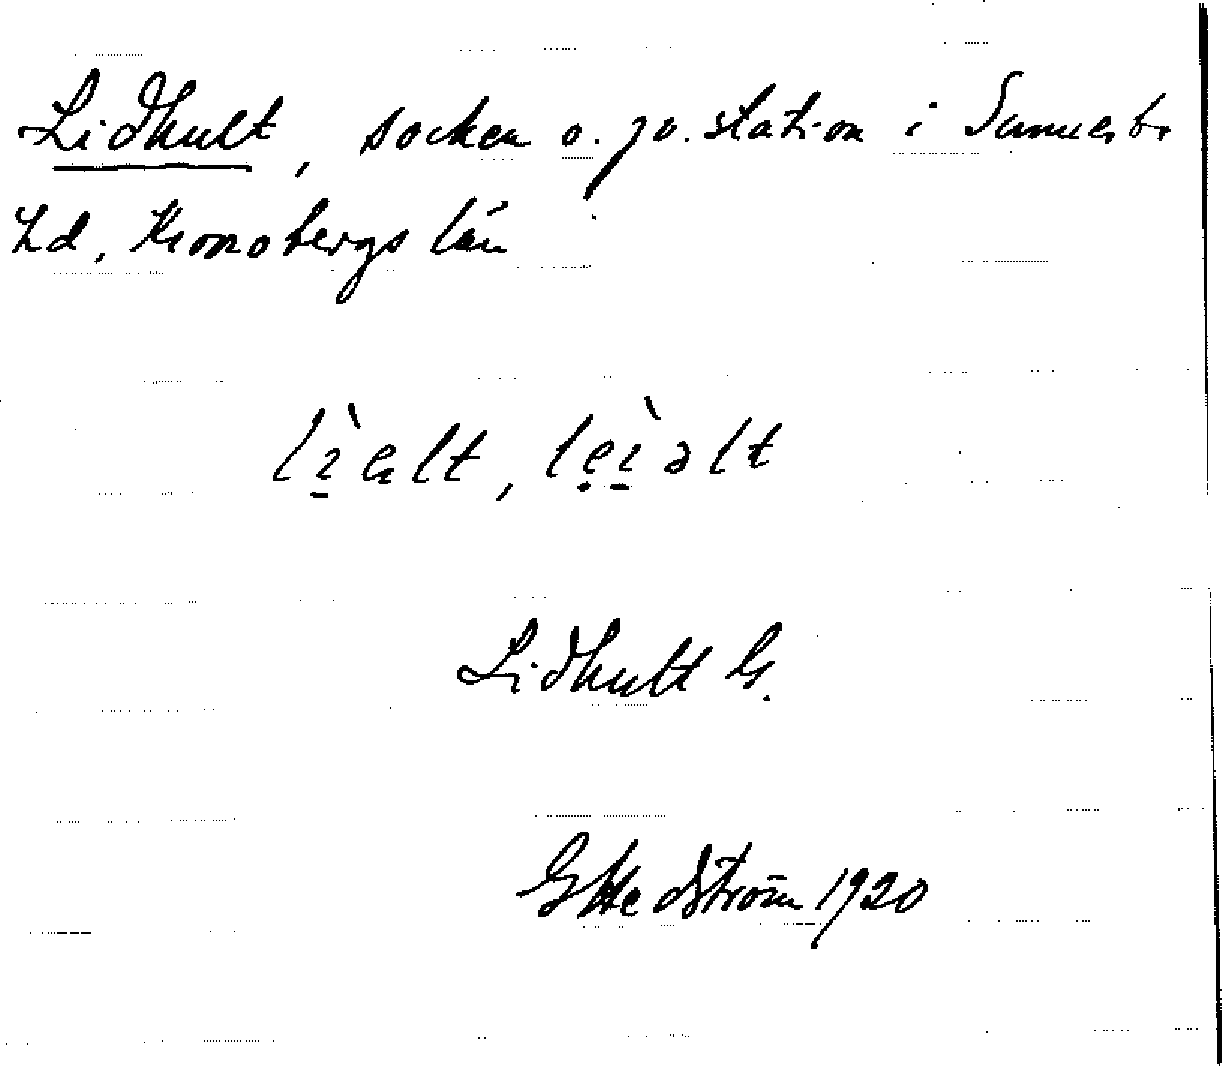 Lidhult, socken o. jv. station i Sunnerbo
hd, Kronobergs län
Lidhult G.
G Hedström 1920